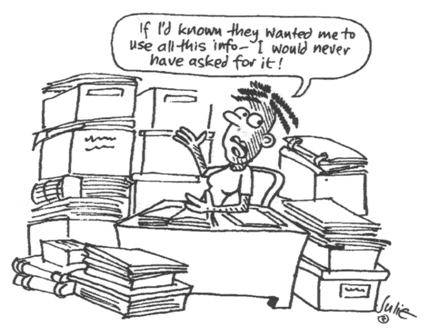 If I'd known they wanted me to
use all this info— I would never
have asked for it!
Julie